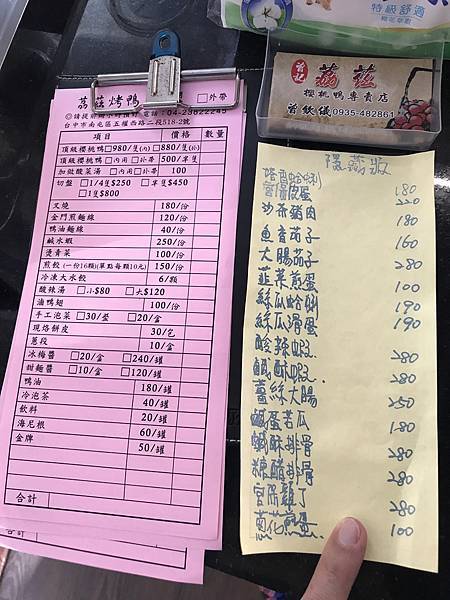 特級舒適
荔茲烤鴨 □外帶
台中市南屯區五權西路二段518-2號
項目 價格 數量
頂級櫻桃鴨□980/隻(大)□880/隻(小)
頂級櫻桃鴨□內用□外帶 500/單隻
加做酸菜湯 □內用□外帶 100
切盤 □1/4隻$250 □半隻$450
□1隻$800
叉燒 180/份
金門煎麵線 120/份
鴨油麵線 40/份
鹹水蝦 250/份
燙青菜 100/份
煎餃(一份16顆)(單點每顆10元) 150/份
冷凍大水餃 6/顆
酸辣湯 □小$80 □大$120
滷鴨翅 100/份
手工泡菜□30/瑩 □20/盒
現烙餅皮 30/包
蔥段 10/盒
冰梅醬 □20/盒 □240/罐
甜麵醬 □10/盒 □120/罐
鴨油 180/罐
冷泡茶 40/罐
飲料 20/罐
海尼根 60/罐
金牌 50/罐
合計
合計
曾記 荔茲
櫻桃鴨專賣店
曾欽儀 0935-482861
隱藏版
塔香蛤蜊 180
宮保皮蛋 220
沙茶豬肉 180
魚香茄子 160
大腸茄子 280
韮菜煎蛋 100
絲瓜蛤蜊 190
絲瓜滑蛋 190
酸辣蝦 280
鹹酥蝦 280
薑絲大腸 250
鹹蛋苦瓜 180
鹹酥排骨 280
糖醋排骨 280
宮保雞丁 280
蔥花煎蛋 100